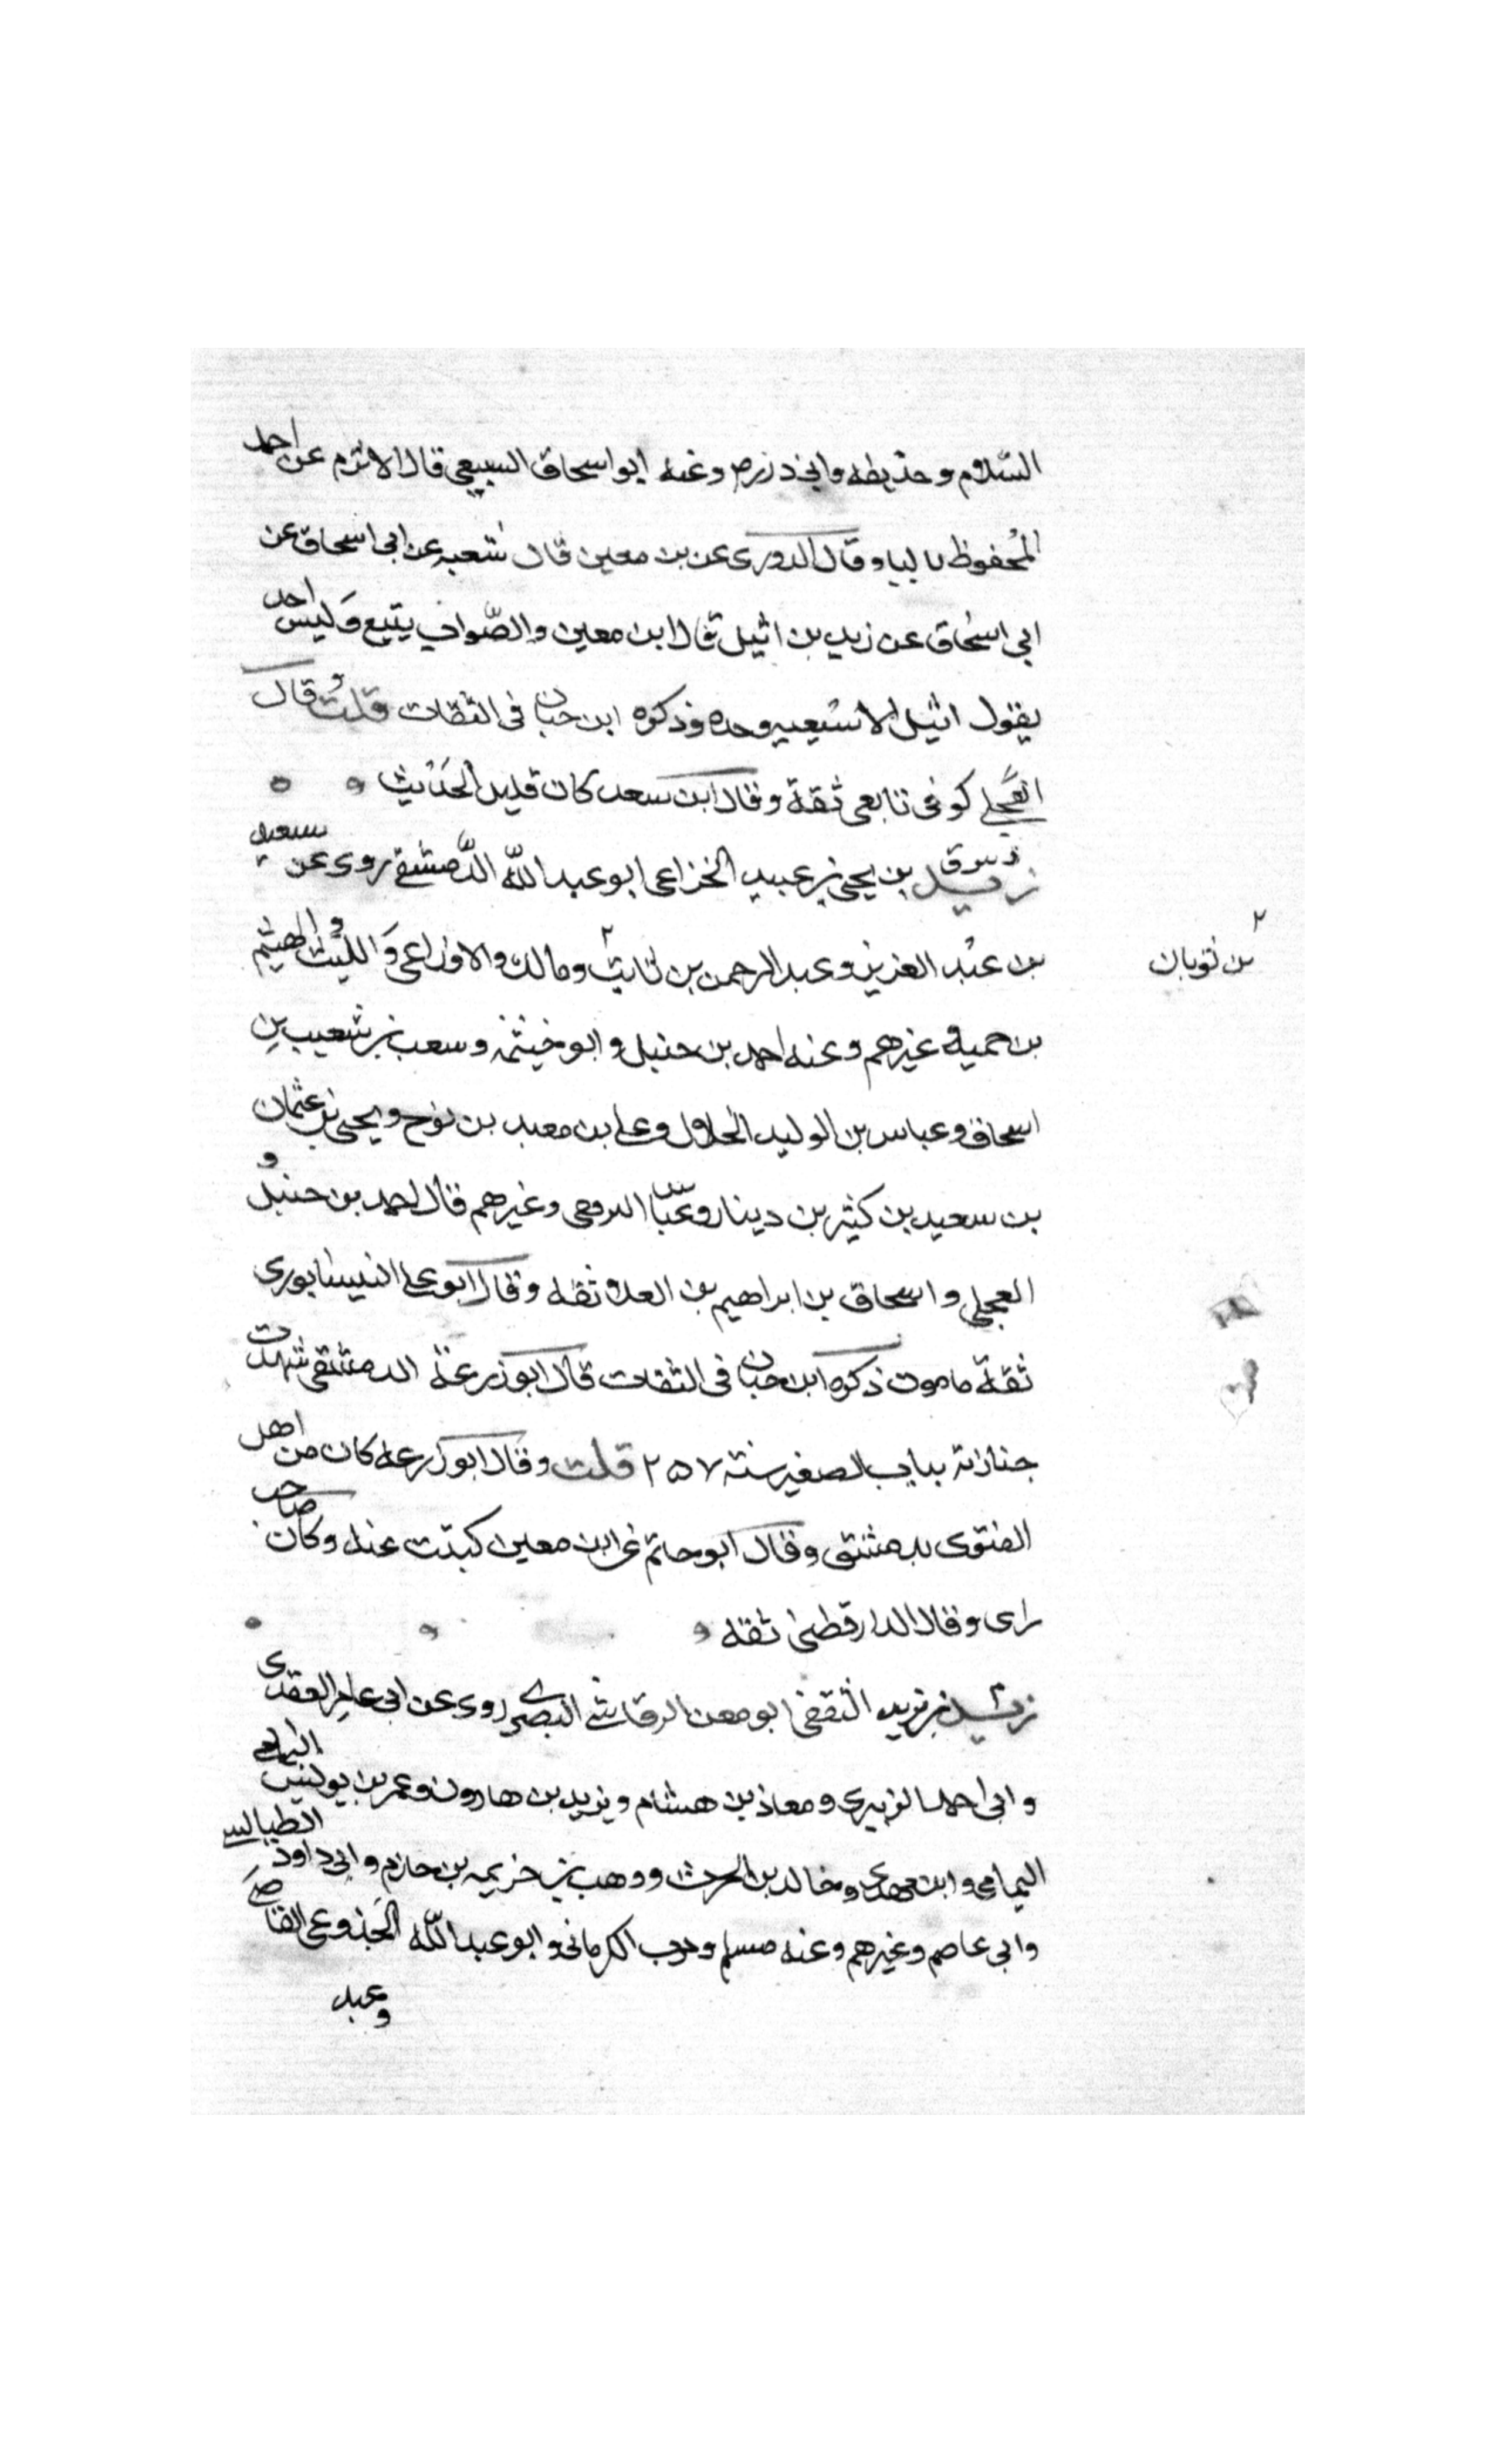 السّلام وحذيفه وابي ذر رض وعنه ابو اسحاق السبيعي قال الاثرم عن احمد
المحفوظ باليا وقال الدورى عن بن معين قال شعبه عن ابى اسحاق عن
ابي اسحاق عن زيد بن اثيل قال ابن معين والصّواب يثيع وَليس احد
يقول اثيل الا شعبه وحده وذكره ابن حبان فى الثقات قلت وقال
العجلي كوفى تابعى ثقة وقال ابن سعد كان قليل الحديث
زيد بن يحيى بن عبيد الخزاعى ابو عبد اللّه الدّمشقي روى عن سعيد
بن عبْد العزيز وعبد الرحمن بن ثابت ٢ ومالك والاوزاعى وَالليث والهيثم
٢ بن ثوبان
بن حميد وغيرهم وعنه احمد بن حنبل وابو خيثمه وسعب بن شعيب بن
اسحاق وعباس بن الوليد الخلال وعلى بن معبد بن نوح ويحيى بن عثمان
بن سعيد بن كثير بن دينار وعبّاس الدوري وغيرهم قال احمد بن حنبل و
العجلي واسحاق بن ابراهيم بن العلا ثقه وقال ابو على النيسابورى
ثقة مامون ذكره ابن حبان فى الثقات قال ابو زرعة الدمشقى شهدت
جنازته بباب الصغير سنته ٢٥٧ قلت وقال ابو زرعه كان من اهل
الفتوى بدمشق وقال ابو حاتم عن ابن معين كبتت عنه وكان صاحب
راى وقال الدارقطنى ثقه
زيد بن يزيد الثقفى ابو معن الرقاشي البصري روى عن ابى عامر العقدى
وابى احمد الزبيرى ومعاذ بن هشام ويزيد بن هارون وعمر بن يونس اليمامى
اليمامى وابن مهدى وخالد بن الحرث ووهب بن خزيمه بن حازم وابى داود الطيالسي
وابى عاصم وغيرهم وعنه مسلم وحرب الكرمانى وابو عبد اللّه الجذوعى القاضي
وعبد